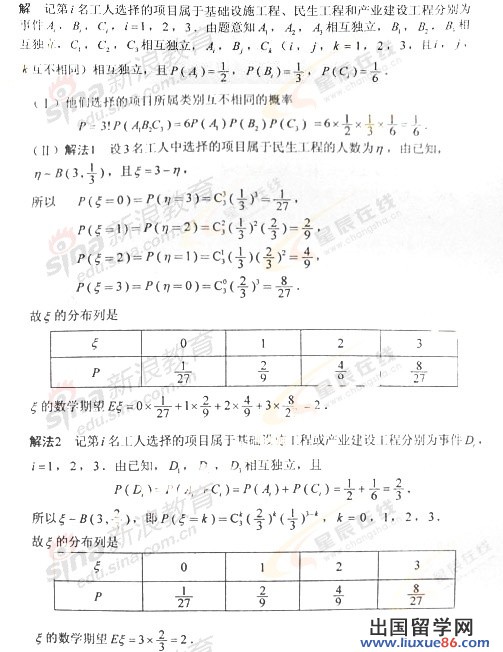 解 记第i名工人选择的项目属于基础设施工程、民生工程和产业建设工程分别为
事件Aᵢ，Bᵢ，Cᵢ，i=1，2，3．由题意知A₁，A₂，A₃相互独立，B₁，B₂，B₃相
互独立，C₁，C₂，C₃相互独立，Aᵢ，Bⱼ，Cₖ（i，j，k=1，2，3，且i，j，
k互不相同）相互独立，且P(Aᵢ)=1/2，P(Bᵢ)=1/3，P(Cᵢ)=1/6．
（Ⅰ）他们选择的项目所属类别互不相同的概率
P=3!P(A₁B₂C₃)=6P(A₁)P(B₂)P(C₃)=6×1/2×1/3×1/6=1/6．
（Ⅱ）解法1 设3名工人中选择的项目属于民生工程的人数为η，由已知，
η~B(3,1/3)，且ξ=3-η，
所以 P(ξ=0)=P(η=3)=C₃³(1/3)³=1/27，
P(ξ=1)=P(η=2)=C₃²(1/3)²(2/3)=2/9，
P(ξ=2)=P(η=1)=C₃¹(1/3)(2/3)²=4/9，
P(ξ=3)=P(η=0)=C₃⁰(2/3)³=8/27．
故ξ的分布列是
ξ 0 1 2 3
P 1/27 2/9 4/9 8/27
ξ的数学期望Eξ=0×1/27+1×2/9+2×4/9+3×8/2 =2．
解法2 记第i名工人选择的项目属于基础设施工程或产业建设工程分别为事件Dᵢ，
i=1，2，3．由已知，D₁，D ，D₃相互独立，且
P(Dᵢ)=P(Aᵢ+Cᵢ)=P(Aᵢ)+P(Cᵢ)=1/2+1/6=2/3，
所以ξ~B(3,2/3)，即P(ξ=k)=C₃ᵏ(2/3)ᵏ(1/3)³⁻ᵏ，k=0，1，2，3．
故ξ的分布列是
ξ 0 1 2 3
P 1/27 2/9 4/9 8/27
ξ的数学期望Eξ=3×2/3=2．
sina新浪教育
edu.sina.com.cn
星辰在线
www.changsha.cn
出国留学网
www.liuxue86.com